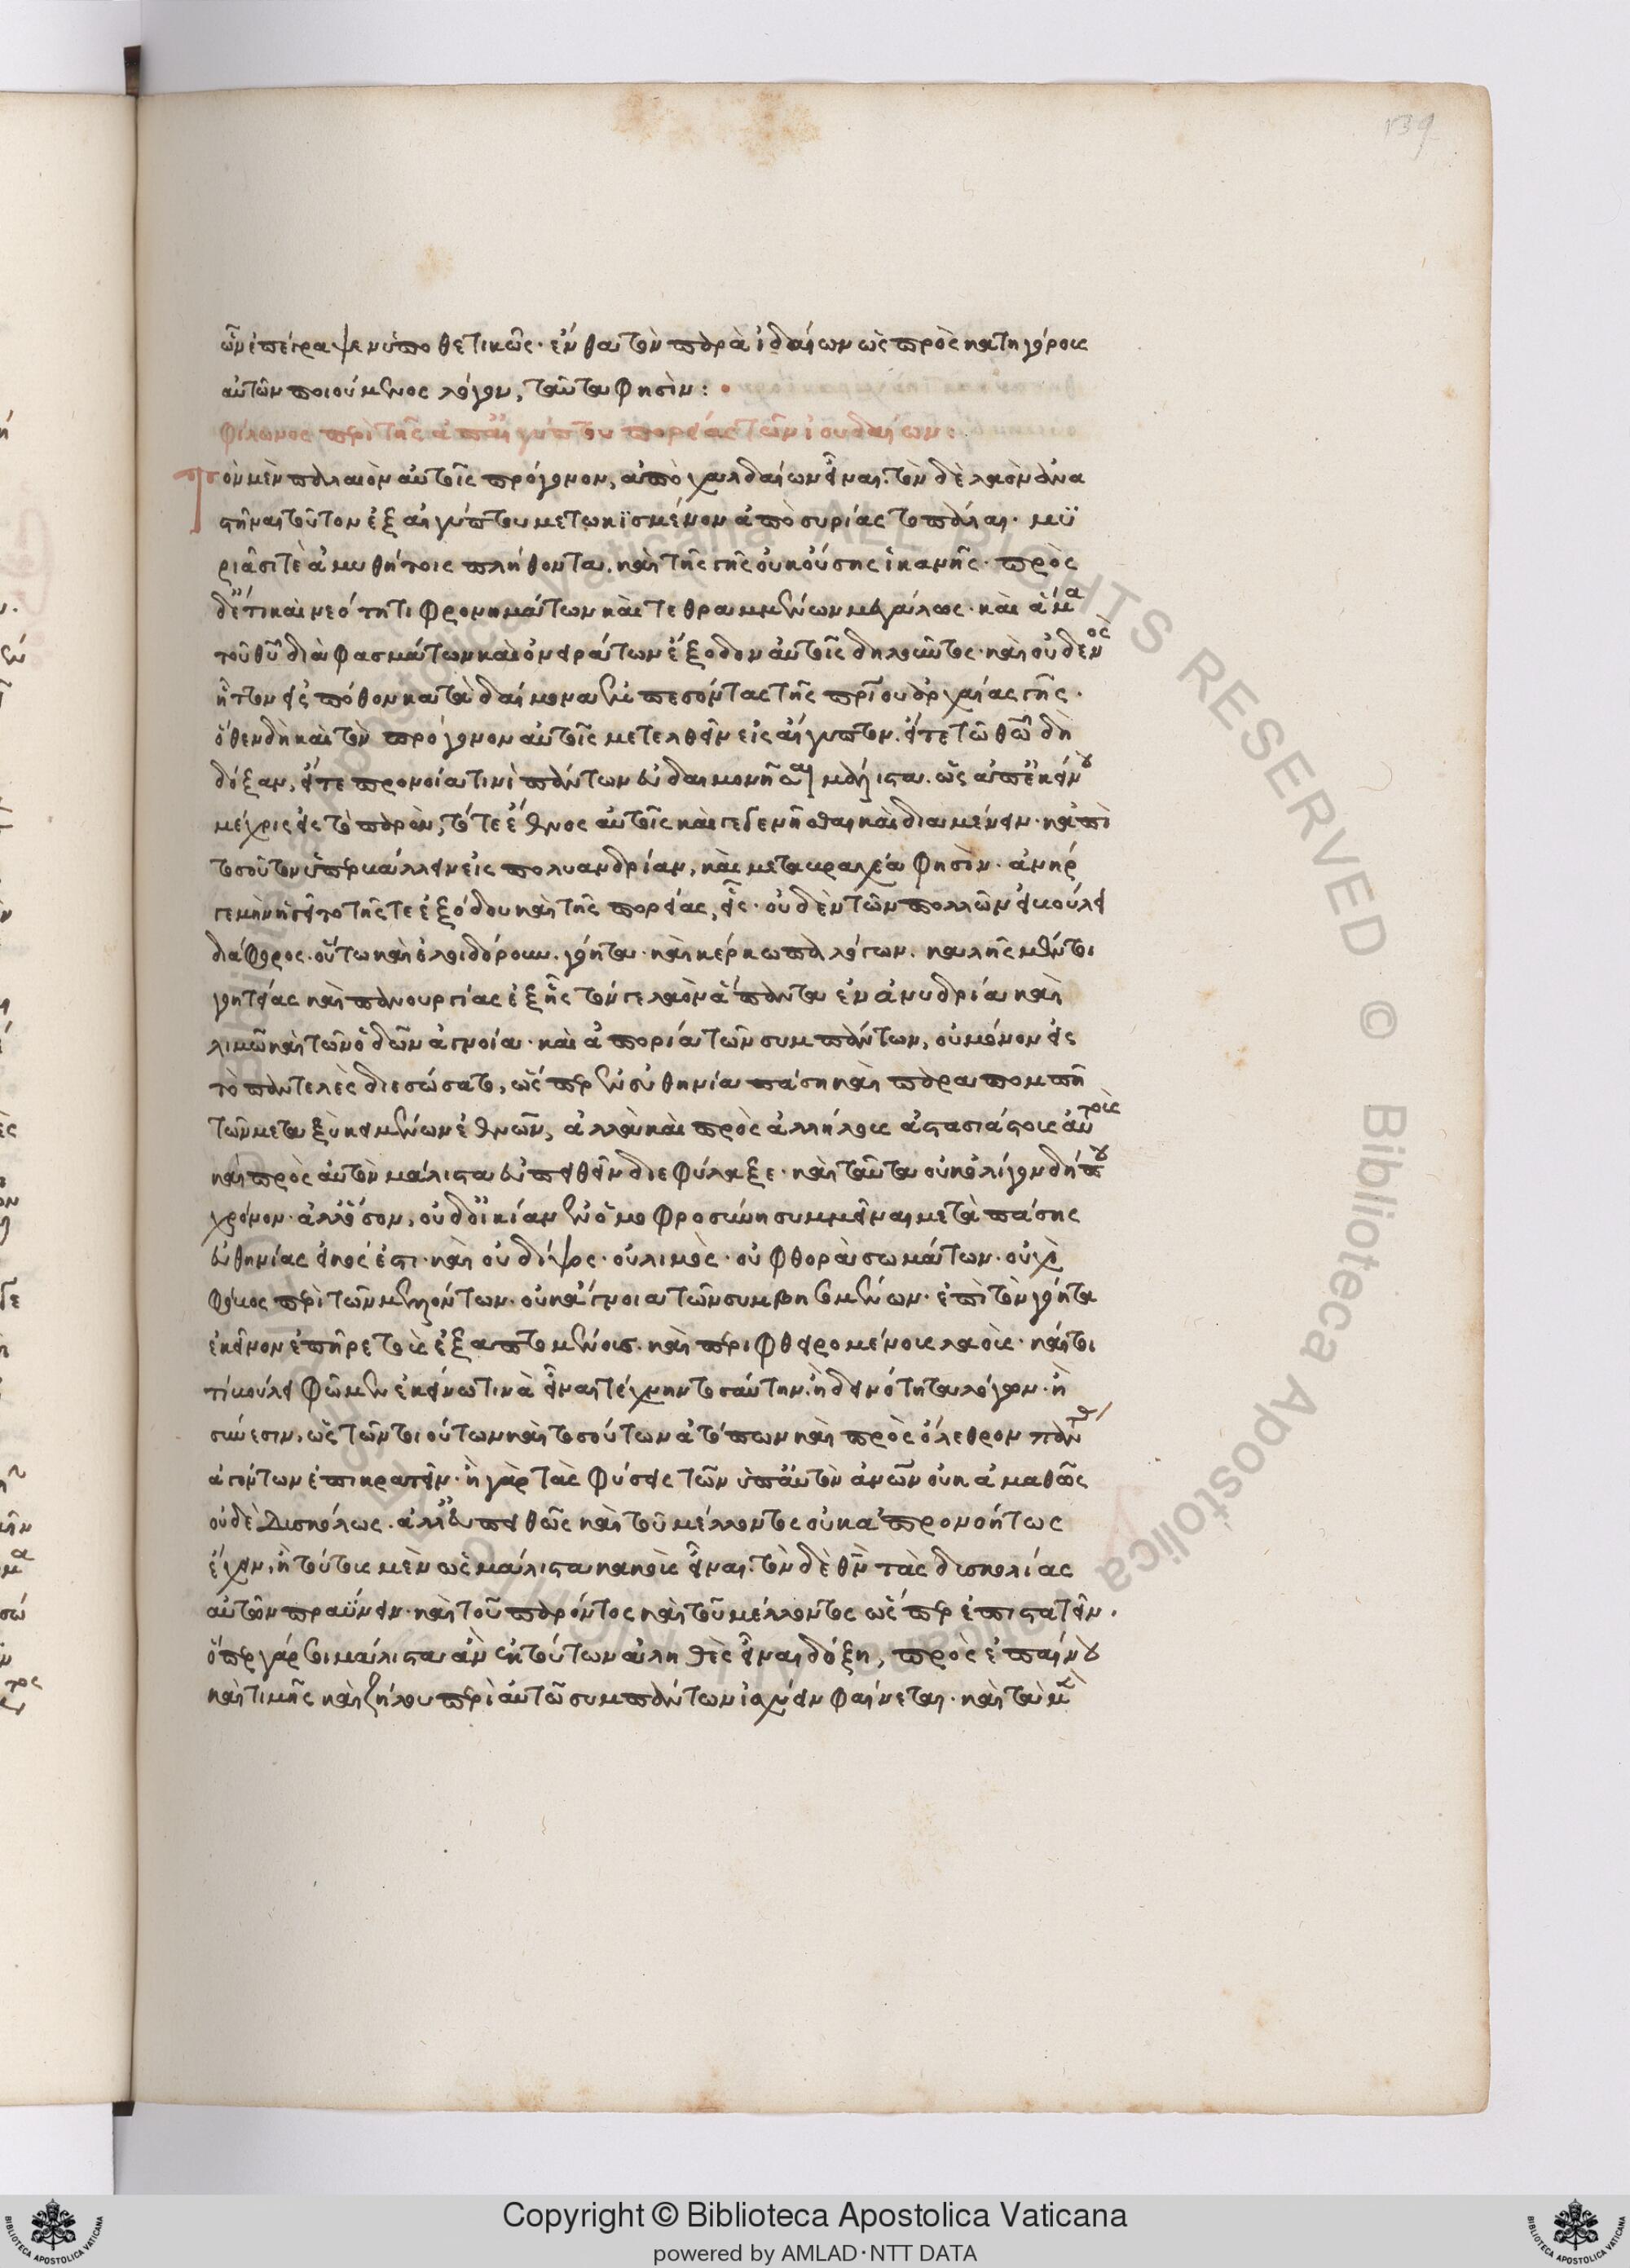 139
ὧν ἐπέγραψεν ὑποθετικῶς· ἔνθα τὸν παρὰ ἰδαίων ὡς πρὸς κατηγόρους
αὐτῶν ποιούμενος λόγον, ταῦτα φησίν:
φίλωνος περὶ τῆς ἀπ' αἰγύπτου πορείας τῶν ἰουδαίων:
Τὸν μὲν παλαιὸν αὐτοῖς πρόγονον, ἀπὸ χαλδαίων εἶναι. τὸν δὲ λαὸν ἀνα
στῆναι τοῦτον ἐξ αἰγύπτου μετῳκισμένον ἀπὸ συρίας τὸ πάλαι. μυ
ριάσι τὲ ἀμυθήτοις πλήθοντα. καὶ τῆς γῆς οὐκ οὔσης ἱκανῆς. πρὸς
δ' ἔτι καὶ νεότητι φρονημάτων καὶ τεθραμμένων μεγάλως. καὶ ἅμα
τοῦ θυ διὰ φασμάτων καὶ ὀνειράτων ἔξοδον αὐτοῖς δηλοῦντος. καὶ οὐδενὸς
ἧττον εἰς πόθον κατὰ δαίμονα ἐμπεσόντας τῆς πατρίου ἀρχαίας γῆς.
ὅθεν δὴ καὶ τὸν πρόγονον αὐτοῖς μετελθεῖν εἰς αἴγυπτον. εἴτε τῷ θῶ δὴ
δόξαν, εἴτε προνοία τινὶ
μέχρις εἰς τὸ παρὸν, τό τε ἔθνος αὐτοῖς καὶ γεγενῆσθαι καὶ διαμένειν. καὶ ἐπὶ
τοσοῦτον ὑπερβάλλειν εἰς πολυανδρίαν, καὶ μετὰ βραχέα φησίν. ἀνήρ
γε μὴν ἡγεῖτο τῆς τε ἐξόδου καὶ τῆς πορείας, εἷς. οὐδὲν τῶν πολλῶν εἰ βούλει
διάφορος. οὕτω καὶ ἐλοιδόρουν. γόητα. καὶ κέρκωπα λόγων. καλῆς μέντοι
γοητείας καὶ πανουργίας ἐξ ἧς τόν γε λαὸν ἅπαντα ἐν ἀνυδρία καὶ
λιμῶ καὶ τῶν ὁδῶν ἀγνοία. καὶ ἀπορία τῶν συμπάντων, οὐ μόνον εἰς
τὸ παντελὲς διεσώσατο, ὥσπερ ἐν εὐθηνία πάση καὶ παραπομπῆ
τῶν μεταξὺ κειμένων ἐθνῶν, ἀλλὰ καὶ πρὸς ἀλλήλους ἀστασιάστους αὐτοὺς
καὶ πρὸς αὐτὸν μάλιστα εὐπειθεῖν διεφύλαξε. καὶ ταῦτα οὐκ ὀλίγον δήπου
χρόνον. ἀλλ' ὅσον, οὐδ' οἰκίαν ἐν ὁμοφροσύνη συμμεῖναι μετὰ πάσης
εὐθηνίας εἰκός ἐστι. καὶ οὐ δίψος. οὐ λιμὸς. οὐ φθορὰ σωμάτων. οὐχὶ
φόβος περὶ τῶν μελλόντων. οὐκ ἄγνοια τῶν συμβησομένων. ἐπὶ τὸν γόητα
ἐκεῖνον ἐπῆρε τοὺς ἐξαπατωμένους. καὶ περιφθειρομένους λαοὺς. καίτοι
τί βούλει φῶμεν ἐκείνω τινὰ εἶναι τέχνην τοσαύτην. ἢ δεινότητα λόγων. ἢ
σύνεσιν. ὡς τῶν τοιούτων καὶ τοσούτων ἀτόπων καὶ πρὸς ὄλεθρον πάντας
ἀγόντων ἐπικρατεῖν. ἢ γὰρ τὰς φύσεις τῶν ὑπ' αὐτὸν ἀνῶν οὐκ ἀμαθῶς
οὐδὲ δυσκόλως. ἀλλ' εὐπειθῶς καὶ τοῦ μέλλοντος οὐκ ἀπρονοήτως
ἔχειν. ἢ τούτους μὲν ὡς μάλιστα κακοὺς εἶναι. τὸν δὲ θν τὰς δυσκολίας
αὐτῶν πραΰνειν. καὶ τοῦ παρόντος καὶ τοῦ μέλλοντος ὥσπερ ἐπιστατεῖν.
ὅπερ γάρ σοι μάλιστα ἂν ἐκ τούτων ἀληθὲς εἶναι δόξη, πρὸς ἐπαίνου
καὶ τιμῆς καὶ ζήλου περὶ αὐτῶ συμπάντων ἰσχύειν φαίνεται. καὶ τὰ μὲν
Copyright © Biblioteca Apostolica Vaticana
powered by AMLAD·NTT DATA